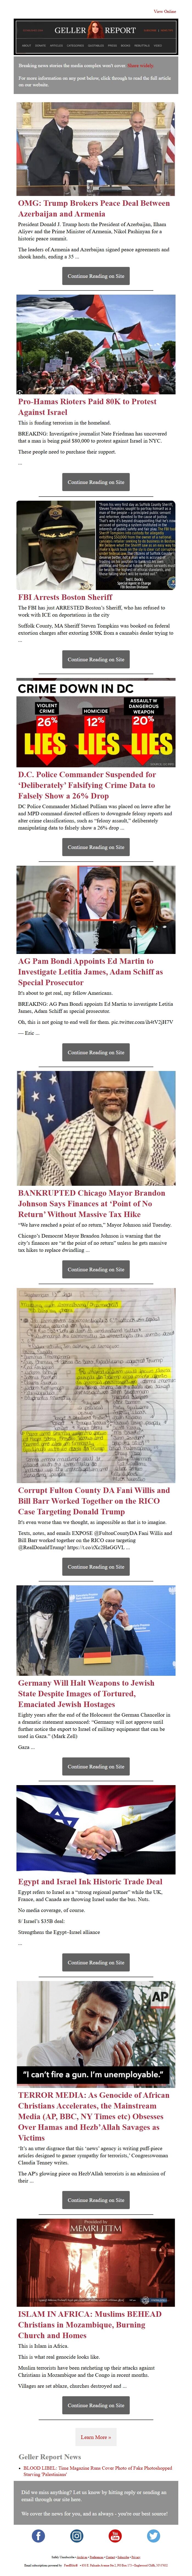 View Online
GELLER REPORT
ABOUT DONATE ARTICLES CATEGORIES
Breaking news stories the media complex won't cover. Share widely.
For more information on any post below, click through to read the full article
on our website.
OMG: Trump Brokers Peace Deal Between
Azerbaijan and Armenia
President Donald J. Trump hosts the President of Azerbaijan, Ilham
Aliyev and the Prime Minister of Armenia, Nikol Pashinyan for a
historic peace summit.
The leaders of Armenia and Azerbaijan signed peace agreements and
shook hands, ending a 35 ...
Continue Reading on Site
Pro-Hamas Rioters Paid 80K to Protest
Against Israel
This is funding terrorism in the homeland.
BREAKING: Investigative journalist Nate Friedman has uncovered
that a man is being paid $80,000 to protest against Israel in NYC.
These people need to purchase their support.
...
Continue Reading on Site
FBI Arrests Boston Sheriff
The FBI has just ARRESTED Boston's Sheriff, who has refused to
work with ICE on deportations in the city
Suffolk County, MA Sheriff Steven Tompkins was booked on federal
extortion charges after extorting $50K from a cannabis dealer trying to
...
Continue Reading on Site
CRIME DOWN IN DC
VIOLENT
CRIME
26%
LIES
HOMICIDE
12%
LIES
ASSAULT W
DANGEROUS
WEAPON
20%
LIES
D.C. Police Commander Suspended for
'Deliberately' Falsifying Crime Data to
Falsely Show a 26% Drop
DC Police Commander Michael Pulliam was placed on leave after he
and MPD command directed officers to downgrade felony reports and
alter crime classifications, such as "felony assault," deliberately
manipulating data to falsely show a 26% drop ...
Continue Reading on Site
AG Pam Bondi Appoints Ed Martin to
Investigate Letitia James, Adam Schiff as
Special Prosecutor
It's about to get real, my fellow Americans.
BREAKING: AG Pam Bondi Appoints Ed Martin to investigate Letitia
James, Adam Schiff as special prosecutor.
Oh, this is not going to end well for them.
— Eric ...
Continue Reading on Site
BANKRUPTED Chicago Mayor Brandon
Johnson Says Finances at 'Point of No
Return' Without Massive Tax Hike
"We have reached a point of no return," Mayor Johnson said Tuesday.
Chicago's Democrat Mayor Brandon Johnson is warning that the
city's finances are "at the point of no return" unless he gets massive
tax hikes to replace dwindling ...
Continue Reading on Site
Corrupt Fulton County DA Fani Willis and
Bill Barr Worked Together on the RICO
Case Targeting Donald Trump
It's even worse than we thought, as impossible as that is to imagine.
Texts, notes, and emails EXPOSE @FultonCountyDA Fani Willis and
Bill Barr worked together on the RICO case targeting
@RealDonaldTrump!
Continue Reading on Site
Germany Will Halt Weapons to Jewish
State Despite Images of Tortured,
Emaciated Jewish Hostages
Eighty years after the end of the Holocaust the German Chancellor in
a dramatic statement announced: "Germany will not approve until
further notice the export to Israel of military equipment that can be
used in Gaza." (Mark Zell)
Gaza ...
Continue Reading on Site
Egypt and Israel Ink Historic Trade Deal
Egypt refers to Israel as a "strong regional partner" while the UK,
France, and Canada are throwing Israel under the bus. Nuts.
No media coverage, of course.
8/ Israel's $35B deal:
Strengthens the Egypt–Israel alliance
...
Continue Reading on Site
AP
"I can't fire a gun. I'm unemployable."
TERROR MEDIA: As Genocide of African
Christians Accelerates, the Mainstream
Media (AP, BBC, NY Times etc) Obsesses
Over Hamas and Hezb'Allah Savages as
Victims
'It's an utter disgrace that this 'news' agency is writing puff-piece
articles designed to garner sympathy for terrorists,' Congresswoman
Claudia Tenney writes.
The AP's glowing piece on Hezb'Allah terrorists is an admission of
their ...
Continue Reading on Site
Provided by
MEMRI JTTM
ISLAM IN AFRICA: Muslims BEHEAD
Christians in Mozambique, Burning
Church and Homes
This is Islam in Africa.
This is what real genocide looks like.
Muslim terrorists have been ratcheting up their attacks against
Christians in Mozambique and the Congo in recent months.
Villages are set ablaze, churches destroyed and ...
Continue Reading on Site
Learn More »
Geller Report News
BLOOD LIBEL: Time Magazine Runs Cover Photo of Fake Photoshopped
Starving 'Palestinians'
Did we miss anything? Let us know by hitting reply or sending us
an email through our site here.
We cover the news for you, and as always - you're our best source!